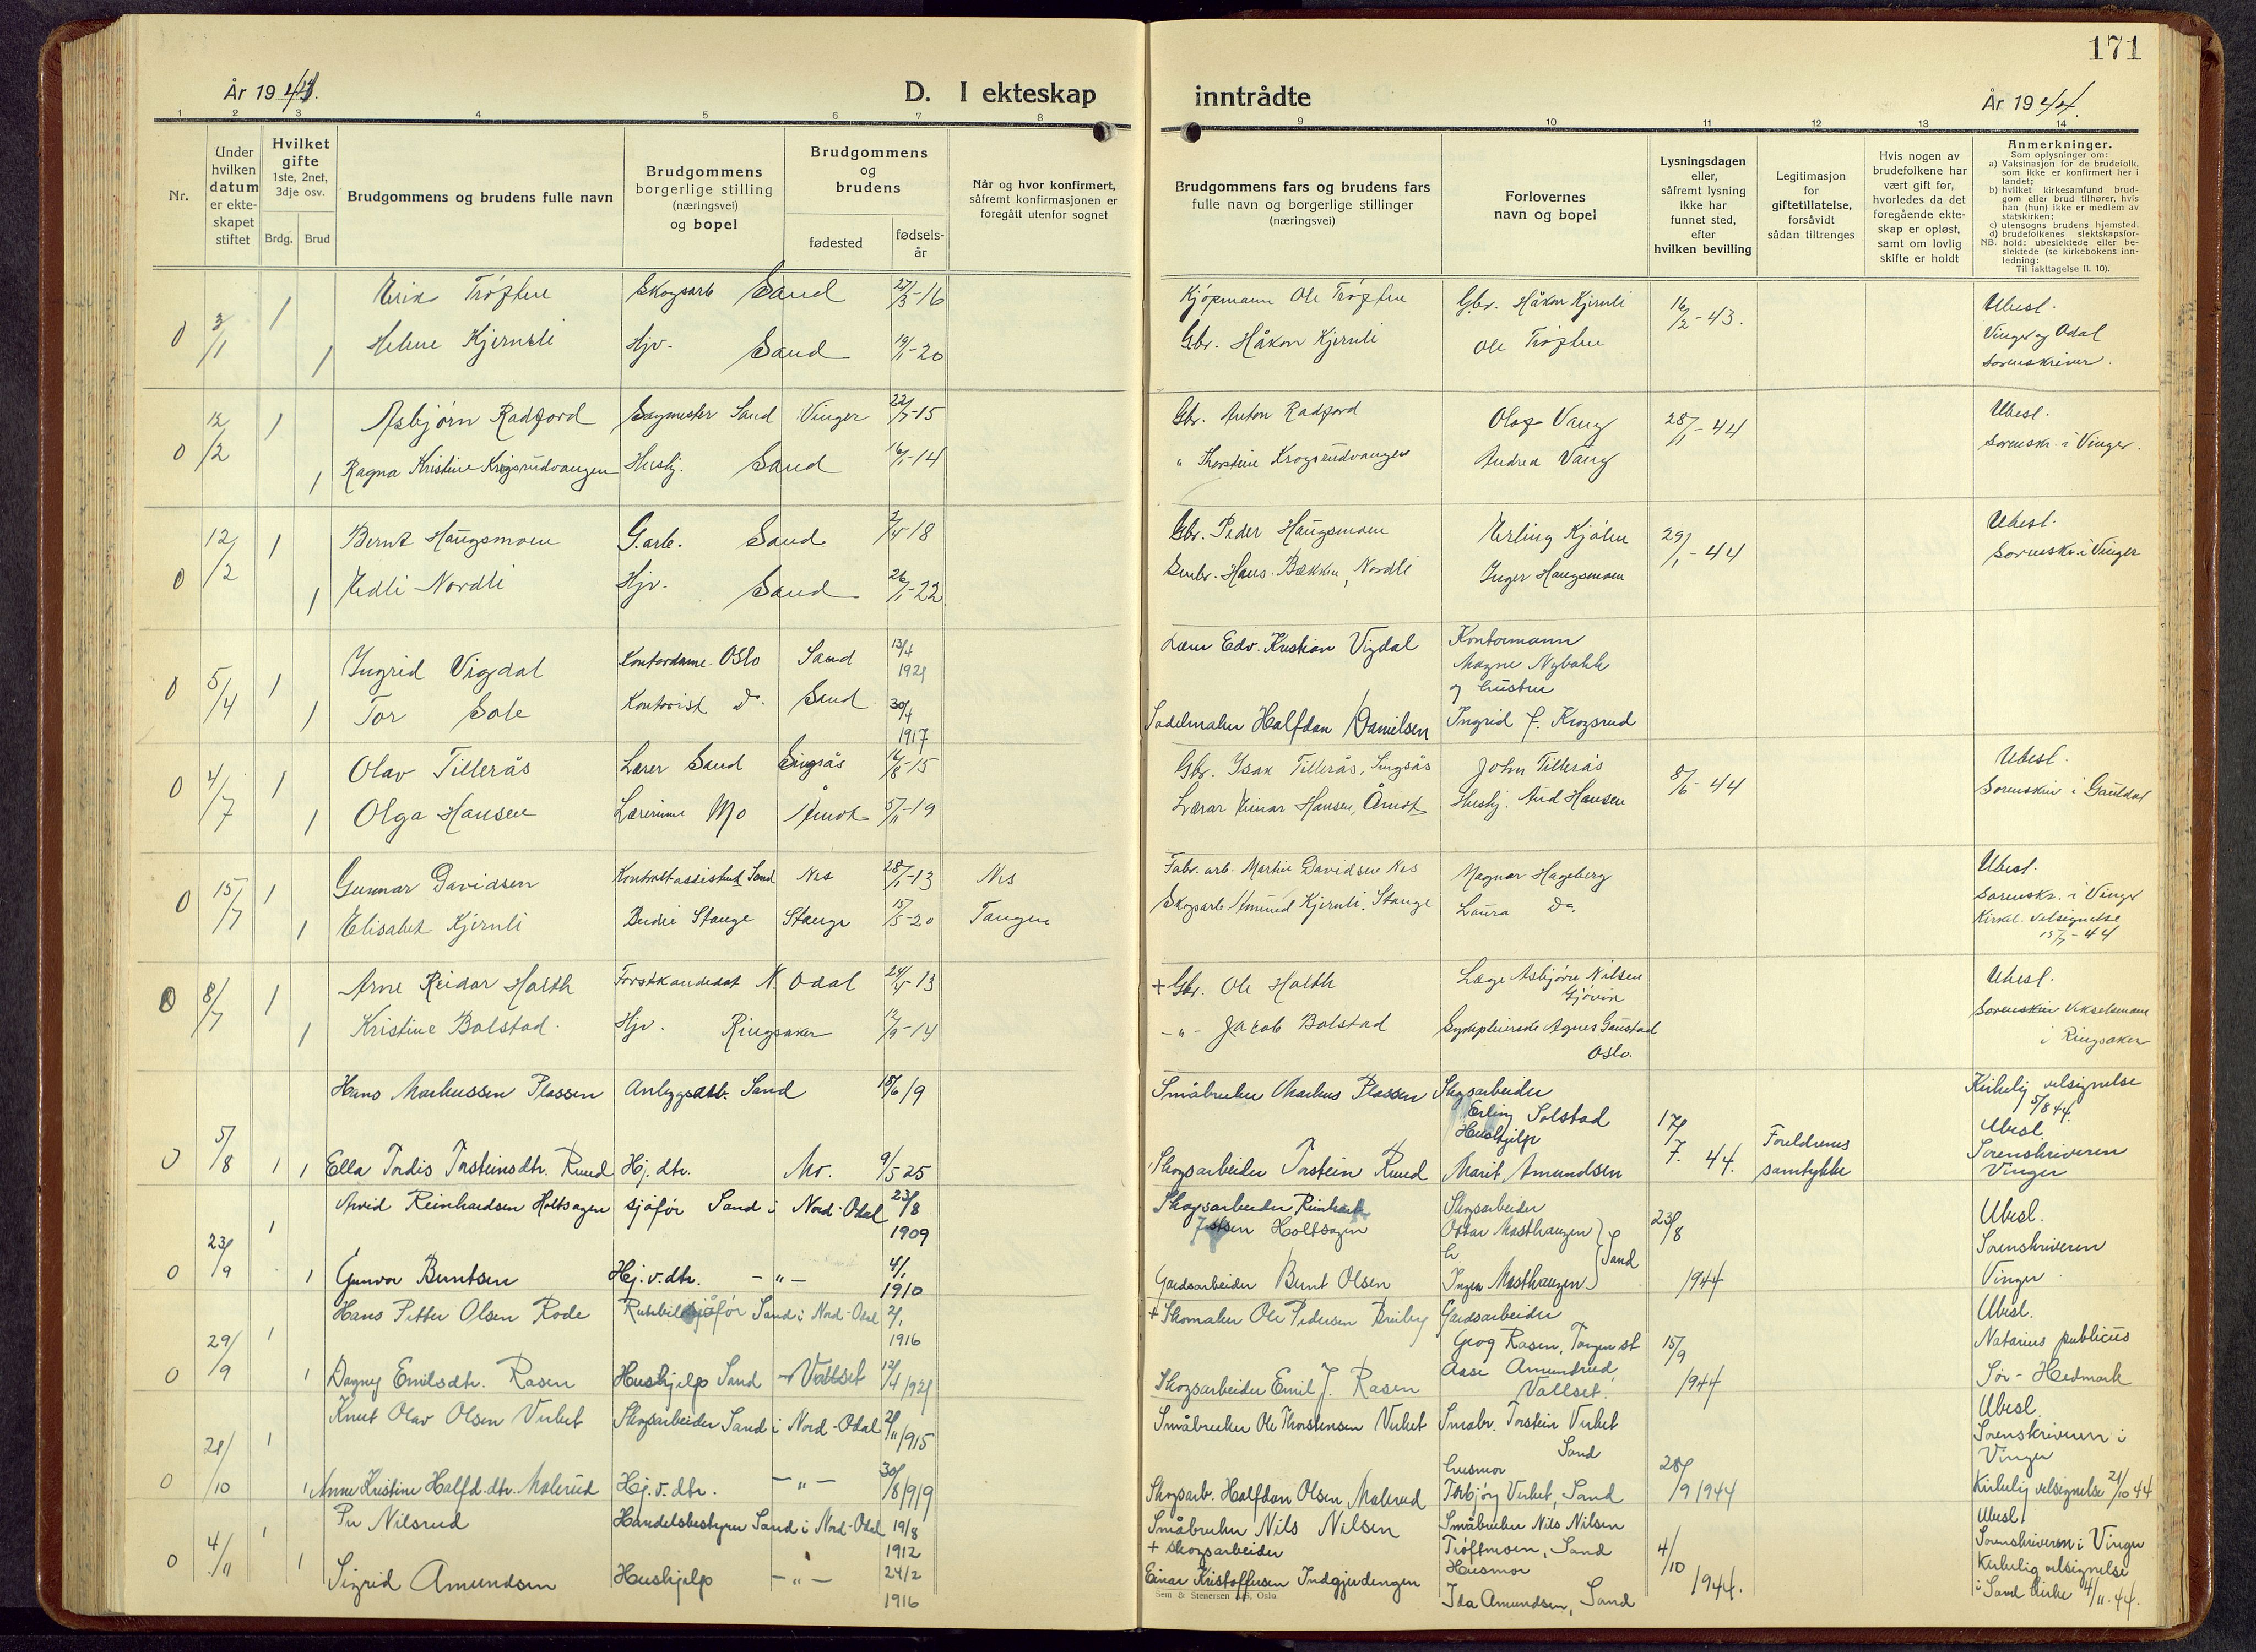 171
År 1944.
D. I ekteskap
inntrådte
År 1944.
1 2 3 4 5 6 7 8
9 10 11 12 13 14
Nr.
Under
hvilken
datum
er ekte-
skapet
stiftet
Hvilket
gifte
1ste, 2net,
3dje osv.
Brdg. Brud
Brudgommens og brudens fulle navn
Brudgommens
borgerlige stilling
(næringsvei)
og bopel
Brudgommens
og
brudens
fødested
fødsels-
år
Når og hvor konfirmert,
såfremt konfirmasjonen er
foregått utenfor sognet
Brudgommens fars og brudens fars
fulle navn og borgerlige stillinger
(næringsvei)
Forlovernes
navn og bopel
Lysningsdagen
eller,
såfremt lysning
ikke har
funnet sted,
efter
hvilken bevilling
Legitimasjon
for
giftetillatelse,
forsåvidt
sådan tiltrenges
Hvis nogen av
brudefolkene har
vært gift før,
hvorledes da det
foregående ekte-
skap er opløst,
samt om lovlig
skifte er holdt
Anmerkninger.
Som oplysninger om:
a) Vaksinasjon for de brudefolk,
som ikke er konfirmert her i
landet;
b) hvilket kirkesamfund brud-
gom eller brud tilhører, hvis
han (hun) ikke er medlem av
statskirken;
c) utensogns brudens hjemsted.
d) brudefolkenes slektskapsfor-
NB. hold: ubeslektede eller be-
slektede (se kirkebokens inn-
ledning:
Til iakttagelse II. 10).
0 3/1 1 Erik Trøften Skogsarb Sand 27/3-16 Kjøpmann Ole Trøften Gbr. Håkon Kjernli 16/2-43. Ubesl.
1 Helene Kjernli Hjv. Sand 19/1-20 Gbr. Håkon Kjernli Ole Trøften Vinger og Odal
sorenskriver.
0 12/2 1 Asbjørn Radford Sagmester Sand Vinger 22/7-15 Gbr. Anton Radford Olaf Vang 28/1-44 Ubesl.
1 Ragna Kristine Krogsrudvangen Hushj. Sand 16/1-14 " Thorstein Krogsrudvangen Andrea Vang sorenskr. i Vinger.
0 12/2 1 Bernt Haugsmoen G.arb. Sand 18 Gbr. Peder Haugsmoen Erling Kjølen 29/1-44 Ubesl.
1 Edli Nordli Hjv. Sand 26/1-22 Hans Bækken, Nordli Inger Haugsmoen Sorenskr. i Vinger
0 5/4 1 Ingrid Vigdal Kontordame Oslo Sand 13/4 1921 Edv. Kristian Vigdal Kontormann
Magne Nybakk
og hustru
1 Tor Sole Kontorist Do. Sand 30/4 1917 Sadelmaker Halfdan Danielsen Ingrid f. Krogsrud
0 4/7 1 Olav Tillerås Lærer Sand Singsås 16/8-15 Gbr. Isak Tillerås, Singsås John Tillerås 8/6-44 Ubesl.
1 Olga Hansen Lærerinne Mo Åmot 5/11-19 Lærar Einar Hansen, Åmot Hushj. Aud Hansen Sorenskriv i Gauldal
0 15/7 1 Gunnar Davidsen Kontrollassistent Sand Nes 28/1-13 Nes Fabr. arb. Martin Davidsen Nes Magnar Hageberg Ubesl.
1 Elisabet Kjernli Budeie Stange Stange 15/5-20 Tangen Skogsarb Amund Kjernli, Stange Laura Do. Sorenskr. i Vinger
Kirkel. velsignelse
15/7-44
0 8/7 1 Arne Reidar Holth Forstkandidat N. Odal 24/4-13 + Gbr. Ole Holth Læge Asbjørn Nilsen
Gjøvik Ubesl.
1 Kristine Bolstad. Hjv. Ringsaker 12/9-14 -"- Jacob Bolstad Sykepleierske Agnes Gaustad
Oslo. Sorenskriv Vikselsmann
i Ringsaker
Hans Markussen Plassen Anlegsarb. Sand 15/6 19 Småbruker Markus Plassen Skogsarbeider
Erling Solstad
Hushjelp Kirkelig velsignelse
5/8 44.
Ubesl.
0 5/8 1 1 Ella Tordis Torsteinsdtr. Ruud Hj. dtr. Mo. 9/5 25 Skogsarbeider Torstein Ruud Marit Amundsen 17/7. 44. Foreldrenes
samtykke Sorenskriveren
Vinger
0 23/9 1 Arvid Reinhardsen Holtsagen sjåfør Sand i Nord-Odal 23/8 1909 Skogsarbeider Reinhart
Holtsagen Skogsarbeider
Ottar Masthaugen 23/8 1944 Ubesl.
1 Gunvor Berntsen Hj. v. dtr. -"- 4/1 1910 Gardsarbeider Bernt Olsen Inger Masthaugen } Sand Sorenskriveren
Vinger
0 29/9 1 Hans Petter Olsen Rode Rutebilsjåfør Sand i Nord-Odal 2/1 1916 + Skomaker Ole Pedersen Breiby Gardsarbeider
Georg Rasen, Tangen st 15/9 1944 Ubesl.
Natarius publicus
1 Dagny Emilsdtr. Rasen Hushjelp Sand - Vallset 12/4 1921 Skogsarbeider Emil J. Rasen Aase Amundrud,
Vallset. Sør-Hedmark
0 21/10 1 Knut Olav Olsen Virket Skogsarbeider Sand i Nord-Odal 2/11 1915 Småbruker Ole Thorstensen Virket Småbr. Torstein Virket
Sand
husmor 28/9 1944 Ubesl.
Sorenskriveren i
Vinger
1 Anne Kristine Halfd. dtr. Malerud Hj. v. dtr. -"- 30/8 1919 Skogsarb. Halfdan Olsen Malerud Torbjørg Virket, Sand Kirkelig velsignelse 21/10 44
0 4/11 1 Per Nilsrud Handelsbestyrer Sand i Nord-Odal 19/8 1912 Småbruker Nils Nilsen Småbruker Nils Nilsen
Trøftmoen, Sand 4/10 1944. Ubesl.
Sorenskriveren i Vinger
1 Sigrid Amundsen Hushjelp -"- 24/2 1916 + skogsarbeider
Einar Kristoffersen Indgjerdingen Husmor
Ida Amundsen, Sand Kirkelig velsignelse
i Sand kirke 4/11.44.
Sem & Stenersen A/S, Oslo